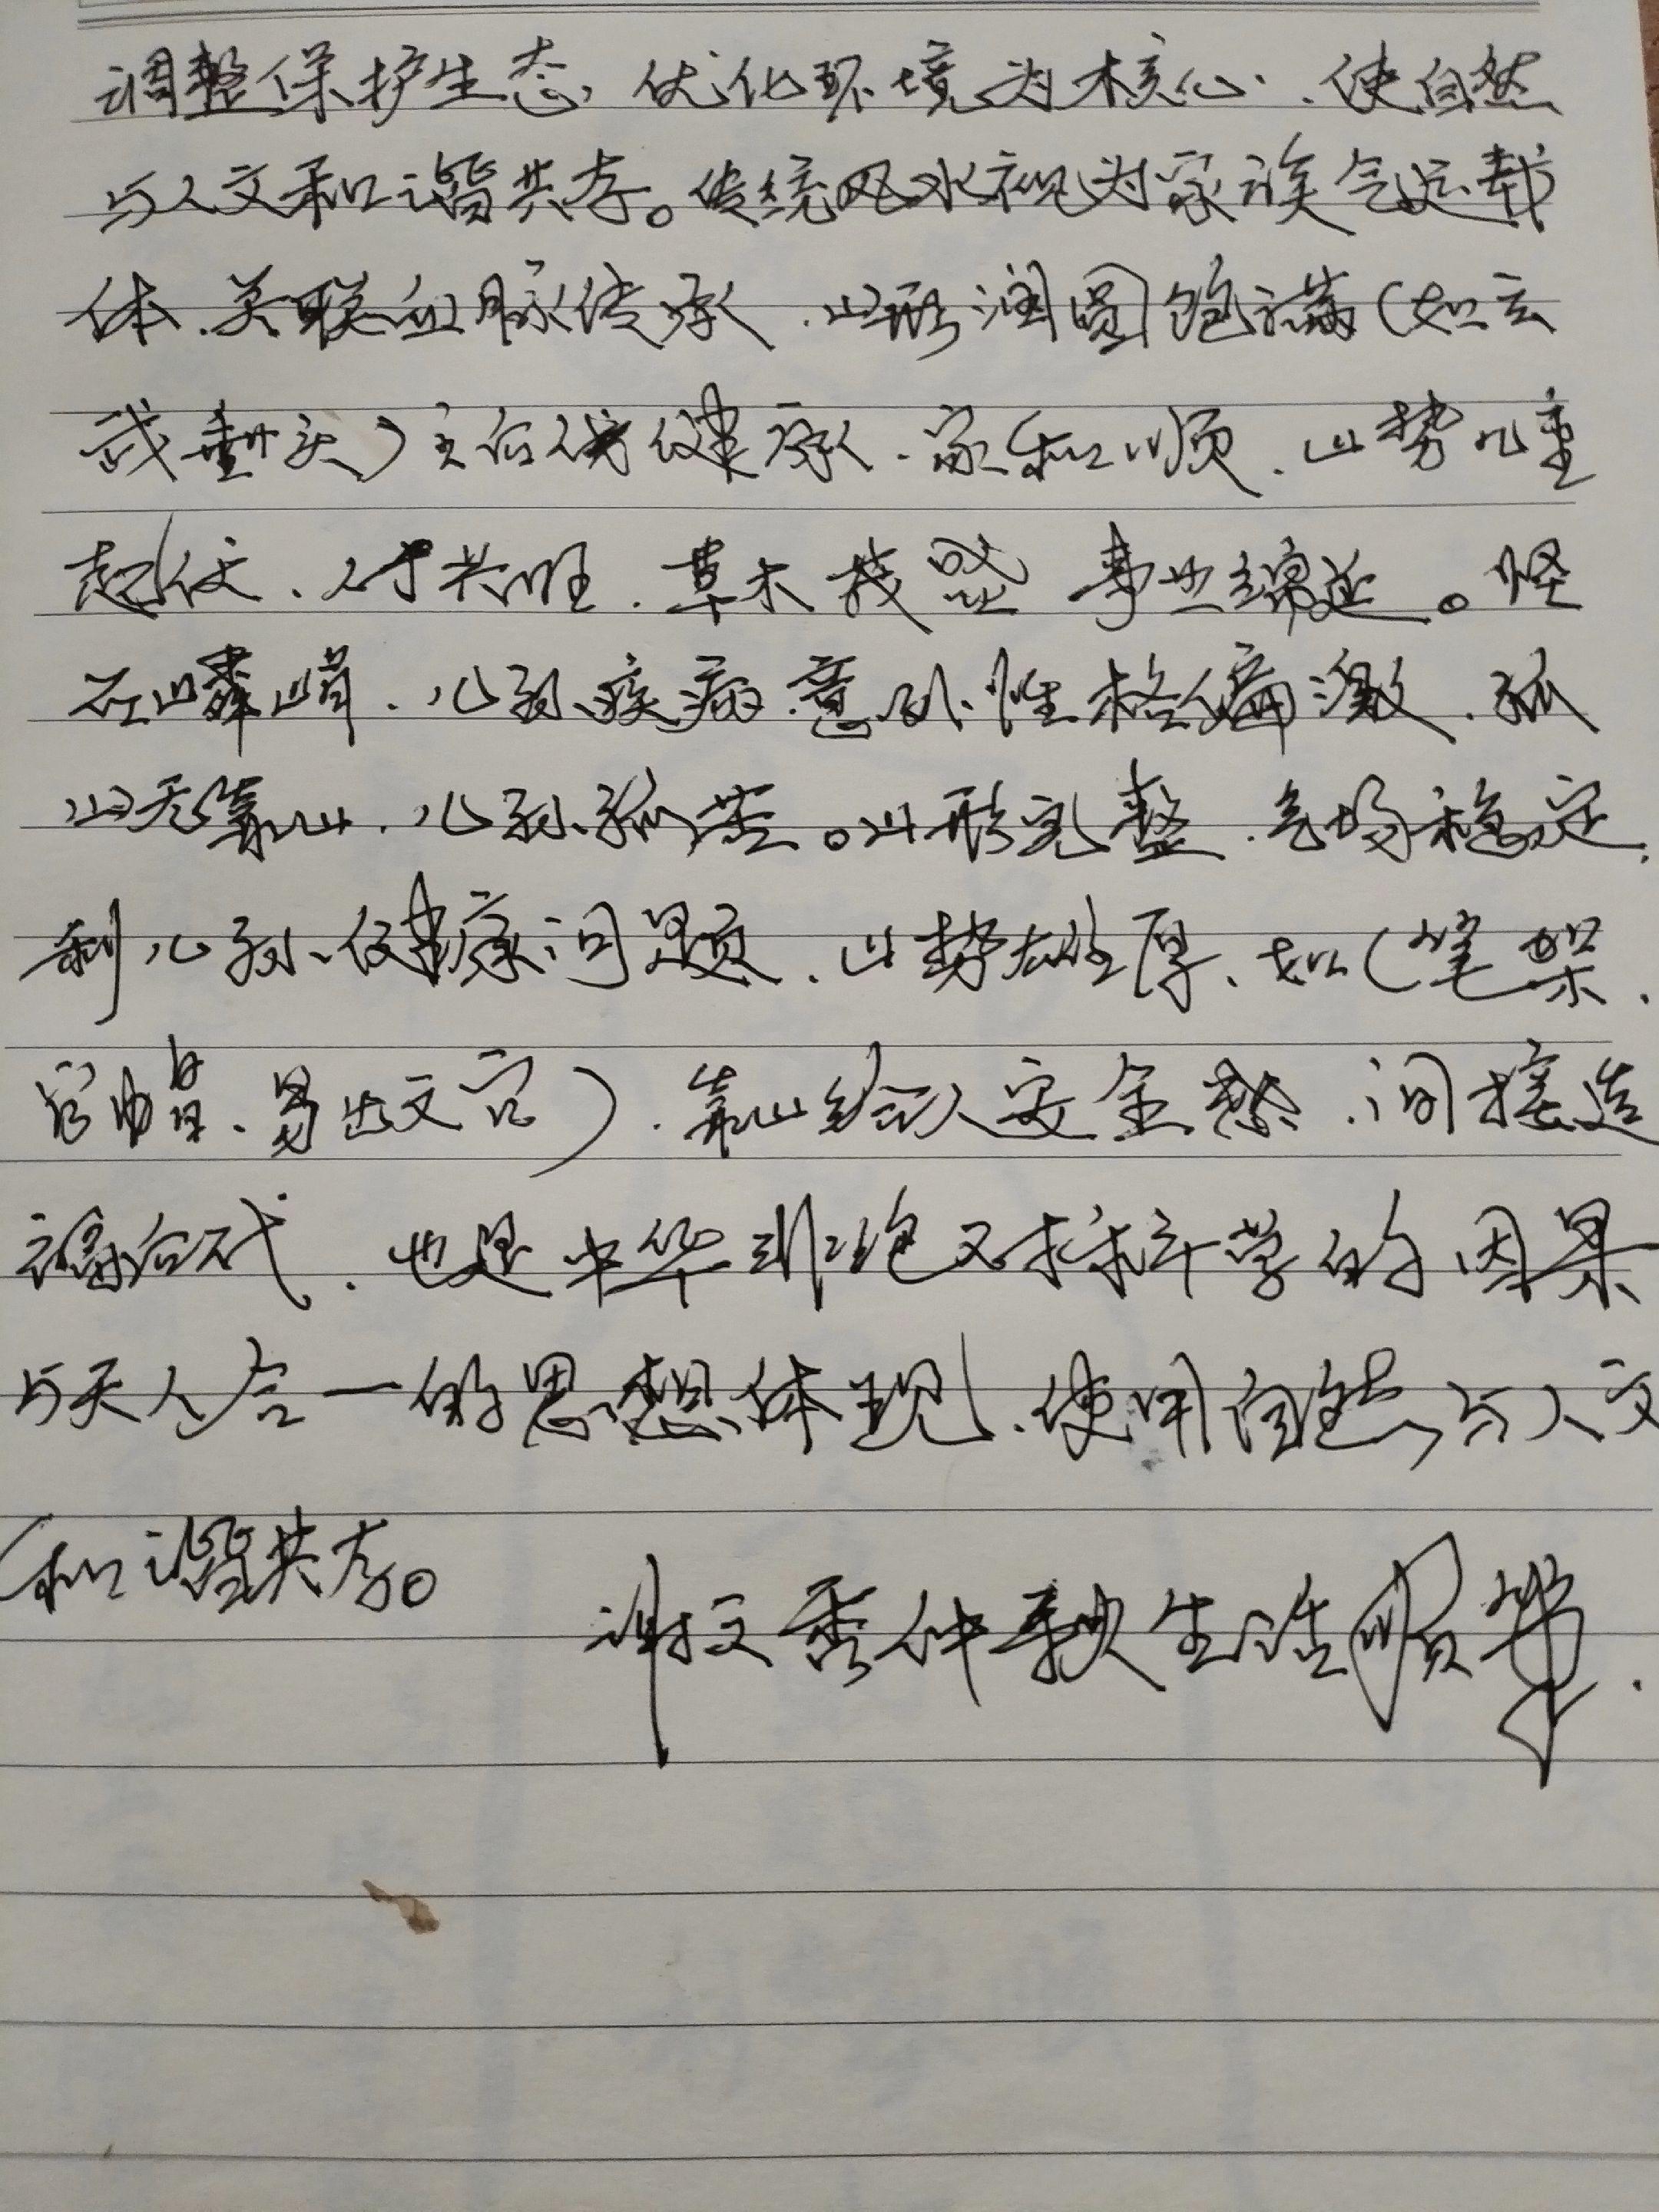 调整保护生态，优化环境为核心、使自然
与人文和谐共存。传统风水视为家族气运载
体、关联血脉传承、山形润圆饱满（如玄
或）主后代健康、家和顺、山势几重
起伏、人才兴旺、草木茂盛 事业绵延。怪
石嶙峋、儿孙疾病意外性格偏激、孤
山无靠山、儿孙孤苦。山形完整、气场稳定、
利儿孙健康问题、山势雄厚、如（笔架、
官帽、易出文官）、靠山给人安全感、间接造
福后代、也是中华对择学的因果
与天人合一的思想体现、使用自然与人文
和谐共存。
谢文秀仲秋生活